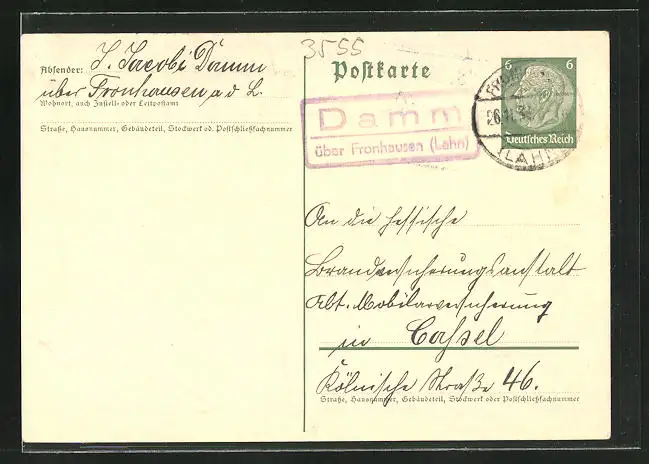 3555
Absender: J. Jacobi Damm
über Fronhausen a d L.
Wohnort, auch Zustell- oder Leitpostamt
Straße, Hausnummer, Gebäudeteil, Stockwerk od. Postschließfachnummer
Postkarte
6 6
Deutsches Reich
(LAHN)
Damm
über Fronhausen (Lahn)
An die Hessische
Brandversicherungsanstalt
Abt. Mobilarversicherung
in Cassel
Kölnische Straße 46.
Straße, Hausnummer, Gebäudeteil, Stockwerk oder Postschließfachnummer